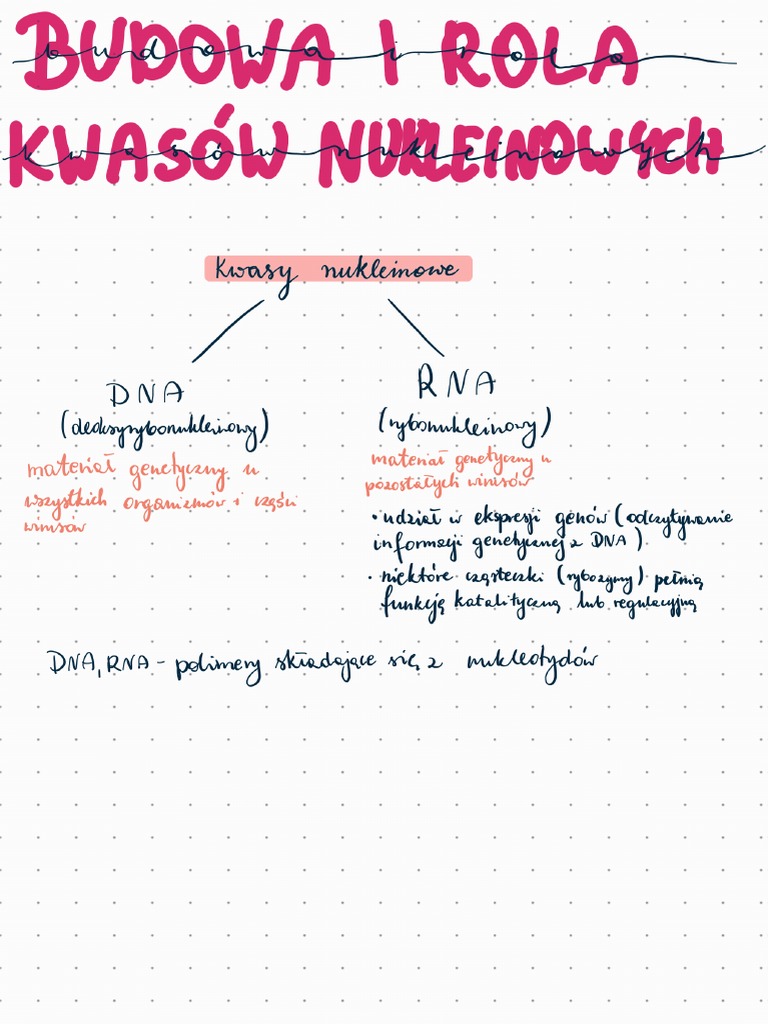 BUDOWA I ROLA
budowa i rola
KWASÓW NUKLEINOWYCH
kwasów nukleinowych
Kwasy nukleinowe
DNA
(deoksyrybonukleinowy)
materiał genetyczny u
wszystkich organizmów i części
wirusów
RNA
(rybonukleinowy)
materiał genetyczny u
pozostałych wirusów
• udział w ekspresji genów (odczytywanie
informacji genetycznej z DNA)
• niektóre cząsteczki (rybozymy) pełnią
funkcję katalityczną lub regulacyjną
DNA, RNA - polimery składające się z nukleotydów